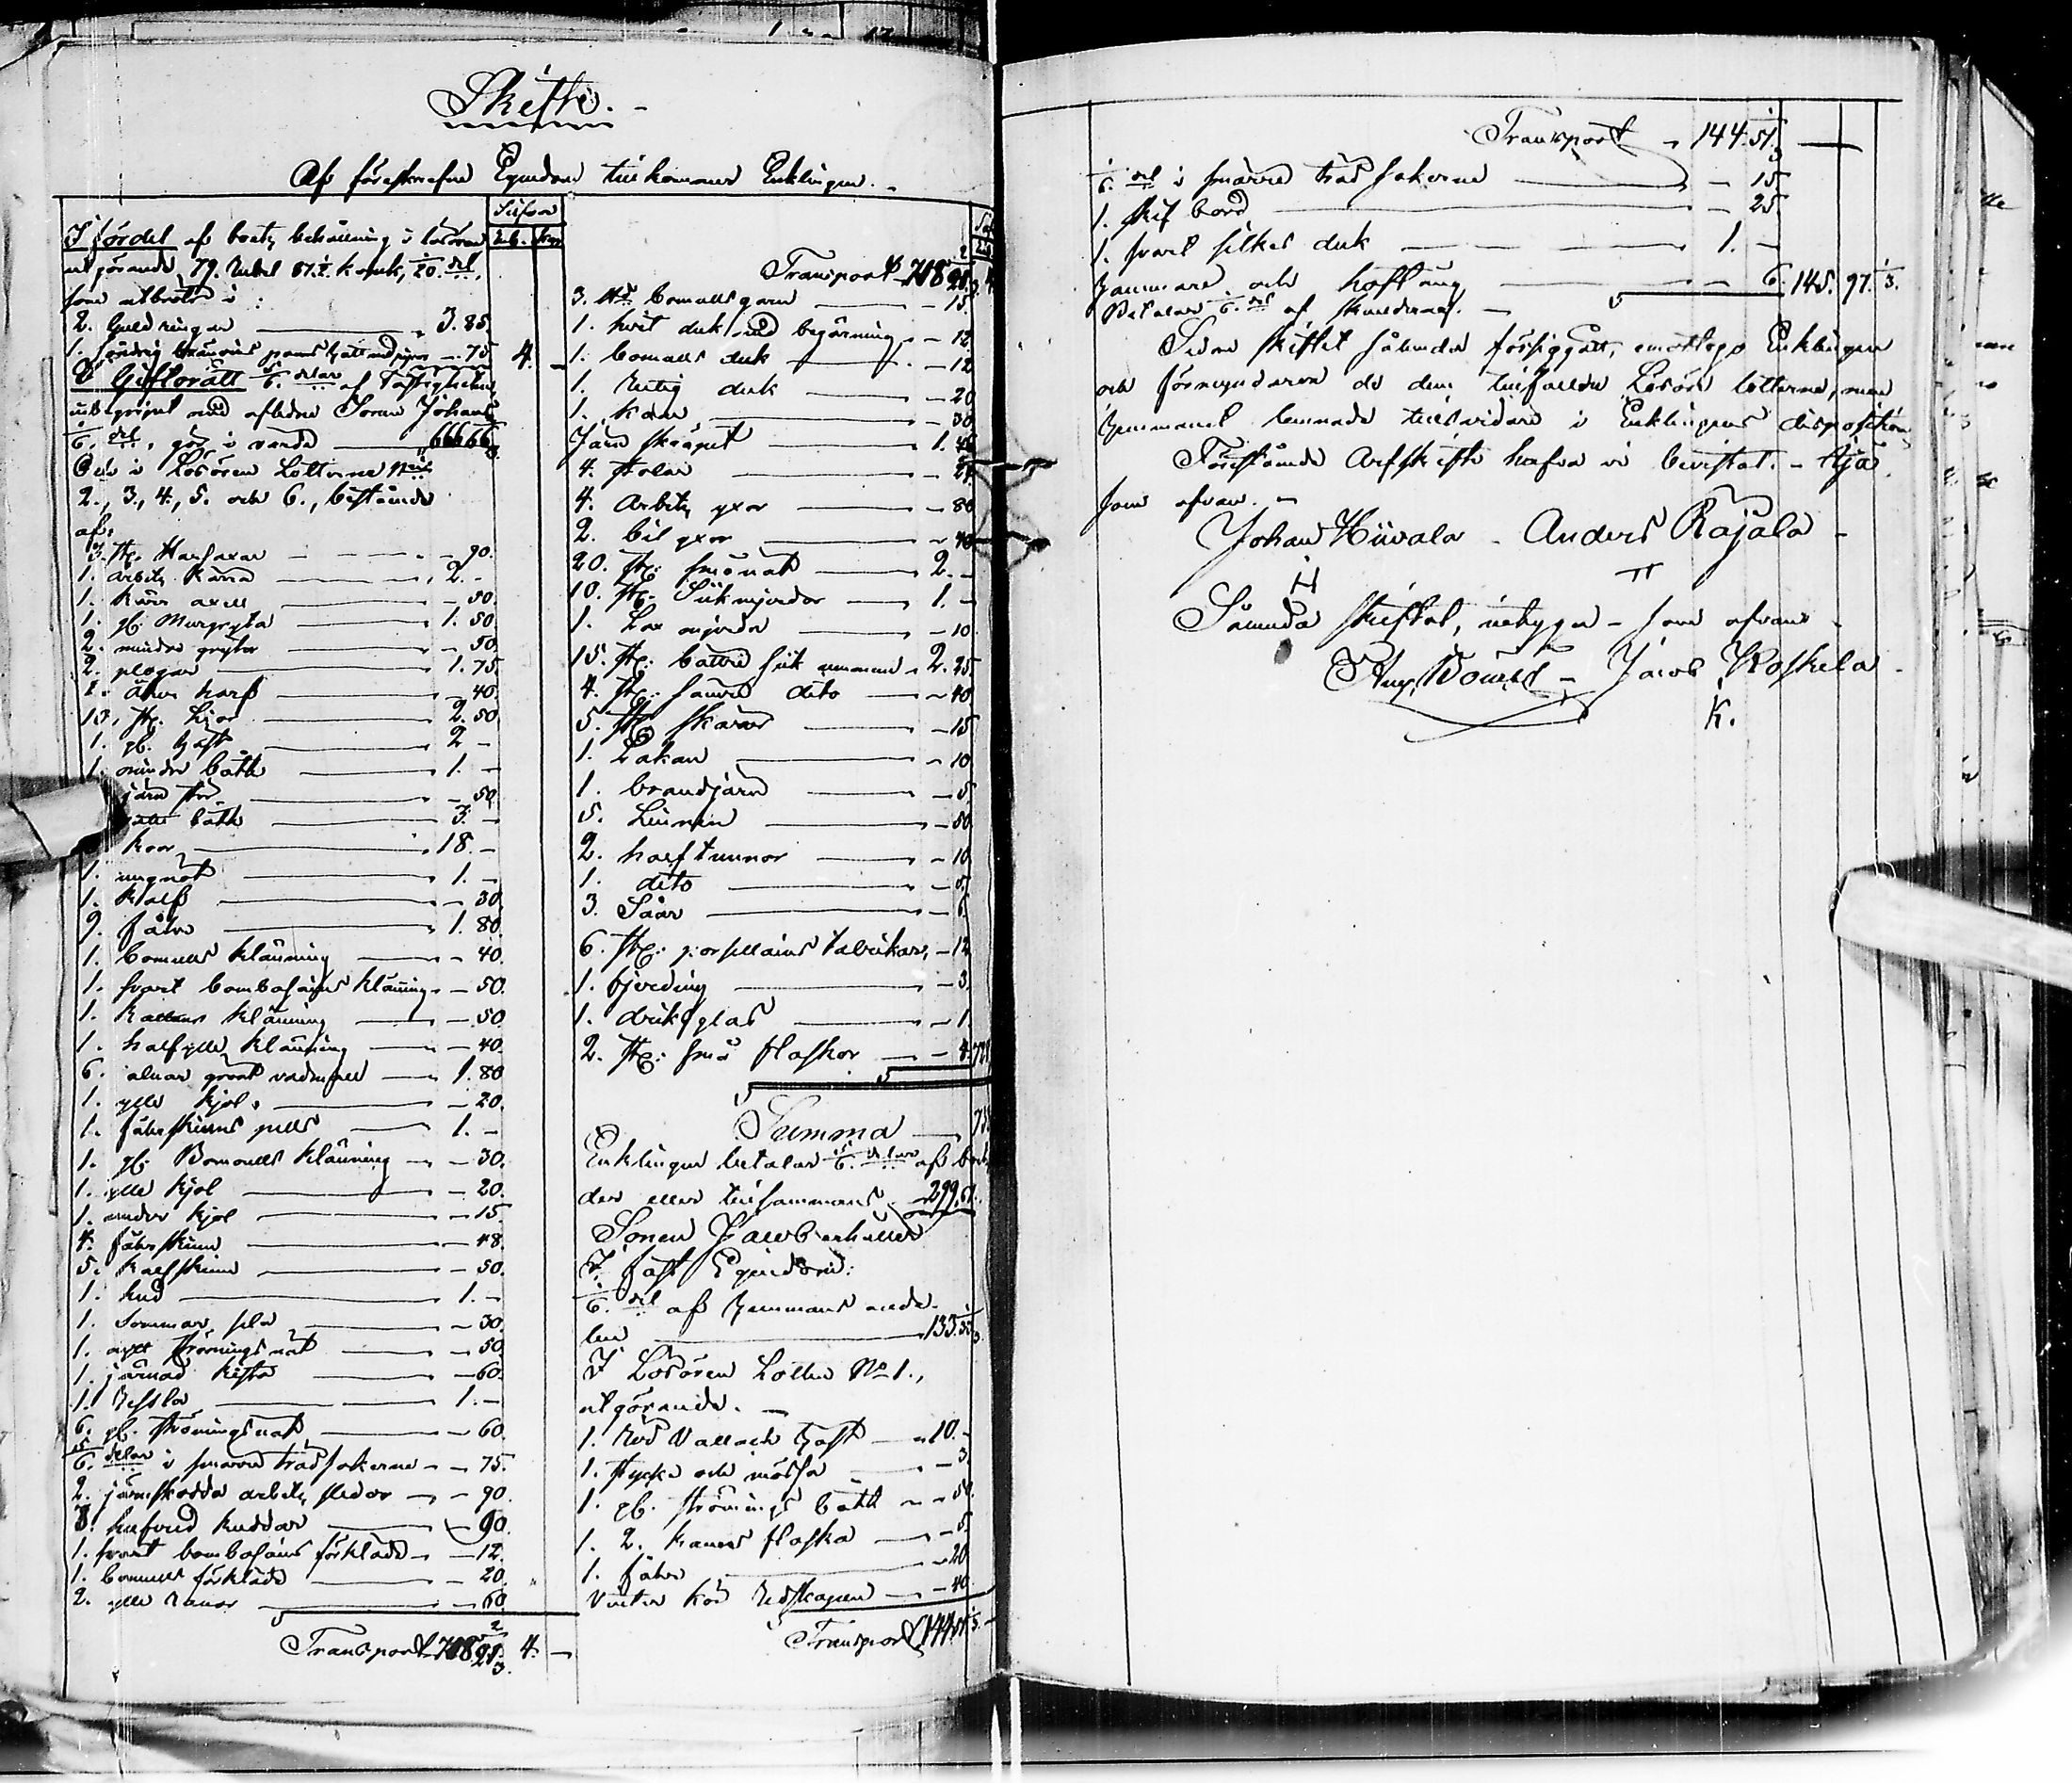 Skifte.
Af föreskrefne Egendom tillkommer Enklingen.
Silfver
Rub. Kop.
I fördel af boets behållning i lösören
utgörande 79. Rubel 87 1/2 kopek, 1/20 del,
som utbröts i:
2. Guldringar 3. 85.
1. 75 4. –
I Giftorätt 5/6 delar af Fastigheten,
med aflidne Sonen Johans
1/6 del, gör i värde 666 66
Och i Lösören Lotterne N:is
2., 3., 4., 5. och 6., bestående
af:
3. st: Harsaxar – 90.
1. arbets kärra 2. –
1. kärr axell – 50.
1. gl. Murgryta 1. 50.
2. mindre grytor – 50.
2. plogar 1. 75.
1. åker harf – 40.
10. st: Liar 2. 50.
1. gl. häst 2 –
1. mindre båth 1. –
järn stör – 50.
båth 3. –
kor 18. –
1. ungnöt 1. –
1. Kalf – 30.
9. fåhr 1. 80.
1. bomulls klänning – 40.
1. svart bombasains klänning – 50.
1. Kattuns klänning – 50.
1. halfylle klänning – 40.
6. alnar groft vadmall 1. 80
1. ylle kjol – 20.
1. fåhrskinns pells 1. –
1. gl. Bomulls klänning – 30.
1. ylle kjol – 20.
1. under kjol – 15.
4. fåhrskinn – 48.
5. kalfskinn – 50.
1. hud 1. –
1. Sommar slä – 30.
1. nytt strömings nät – 50.
1. järnad kista – 60.
1. Ressla 1. –
6. gl. strömingsnät – 60.
5/6 delar i smärre trädsakerne – 75.
2. järnskodda arbets slädor – 90.
3. hufvud kuddar – 90.
1. svart bombasains förkläde – 12.
1. bomulls förkläde – 20.
2. ylle – 60.
Transport 708 91 2/3 4. –
Transport 708 91 2/3
3. bomullsgarn – 15.
1. hvit duk med – 12
1. bomulls duk – 12
1. Rutig duk – 20
1. – 30.
Järn skräpet 1.
4. stolar
4. Arbets yxor – 80
2. bil yxor – 40
20. st: 2. –
10. st: Sikmjerdor 1. –
1. Lax mjerda – 10.
15. st: bättre sik 2. 25.
4. st: sämre dito – 40
5. st: skäror – 15
1. Lakan – 10
1. brandjärn – 5.
5. Linnen – 50
2. halftunnor – 10
1. dito – 5.
3. Såar – 6.
6. st: porsllains talrikar, – 12
1. fjerding – 3.
1. drik glas – 1.
2. st: små flaskor – 4.
Summa
Enklingen betalar 5/6 delar af
der eller tillsammans 299. 61.
Sonen Jacob erhåller
I fast Egendom:
1/6 del af hemmans ande-
len 133. 33 1/3
I Lösören Lotten No 1.,
utgörande. –
1. Röd Vallack häst 10. –
1. stycke och mössa – 3.
1. gl. strömings båth – 50.
1. 2. kanns flaska – 5.
1. fåhr – 20
Vinter kör Redskapen – 40.
Transport 144. 51 1/3. –
Transport 144. 51 1/3 –
1/6 del i smärre träd sakerne – 15
1. skif bord – 25
1. svart silkes duk 1. –
hammare och hoftång – 6. 145. 97 1/3.
Betalar 1/6 del af skulderna. –
Sedan skiftet sålunda försiggått, emottogo Enklingen
och förmyndaren de dem tillfallne Lösöre lotterne, men
hemmanet lemnades tillsvidare i Enklingens disposition.
Förestående Arfskifte hafva vi bevistat. – Aja
som ofvan. –
Johan Hiivala – Anders Rajala –
H
Sålunda skiftat, intyga – som ofvan –
Jacob Koskela –
K.